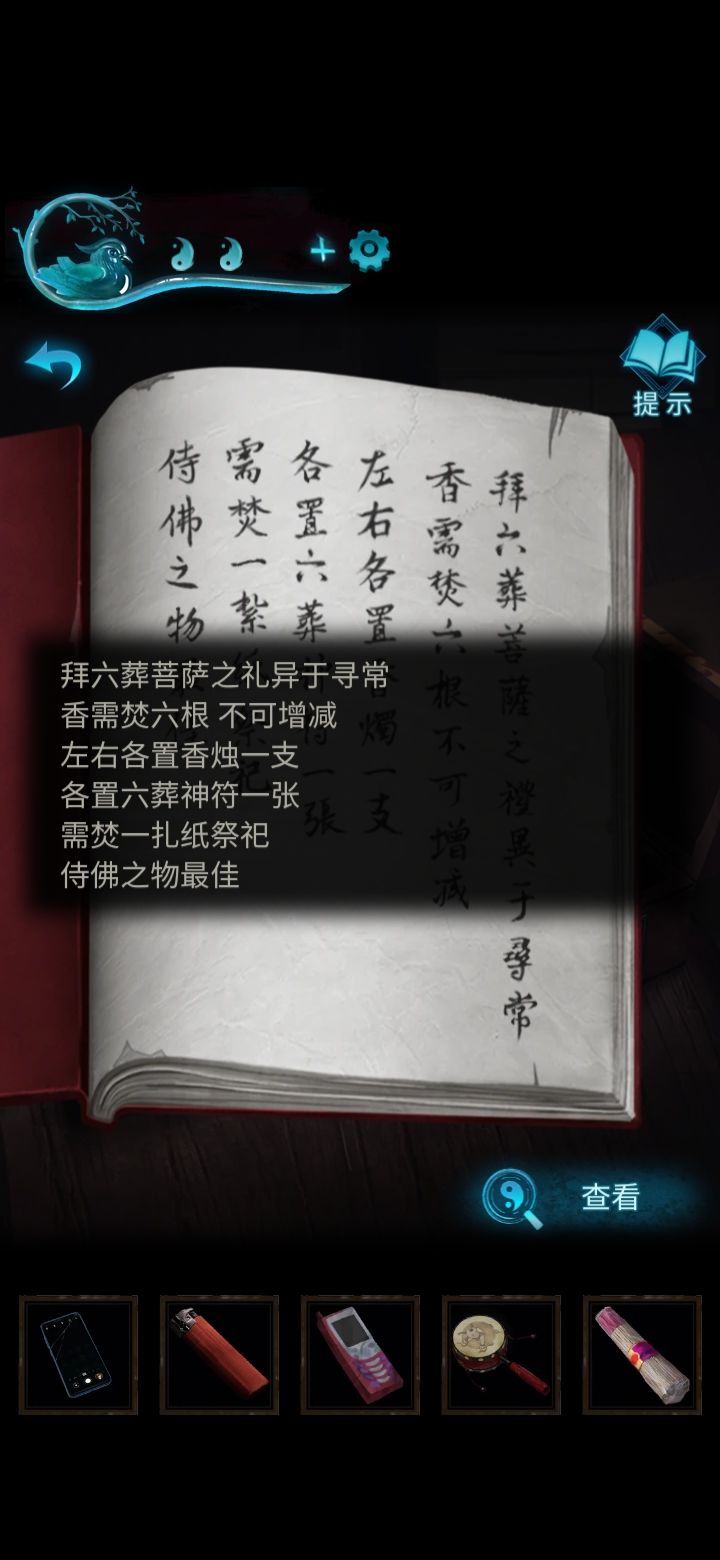 提示
拜六葬菩薩之禮異于尋常
香需焚六根不可增減
左右各置香燭一支
各置六葬神符一張
需焚一紮紙祭祀
侍佛之物最佳
拜六葬菩萨之礼异于寻常
香需焚六根 不可增减
左右各置香烛一支
各置六葬神符一张
需焚一扎纸祭祀
侍佛之物最佳
查看